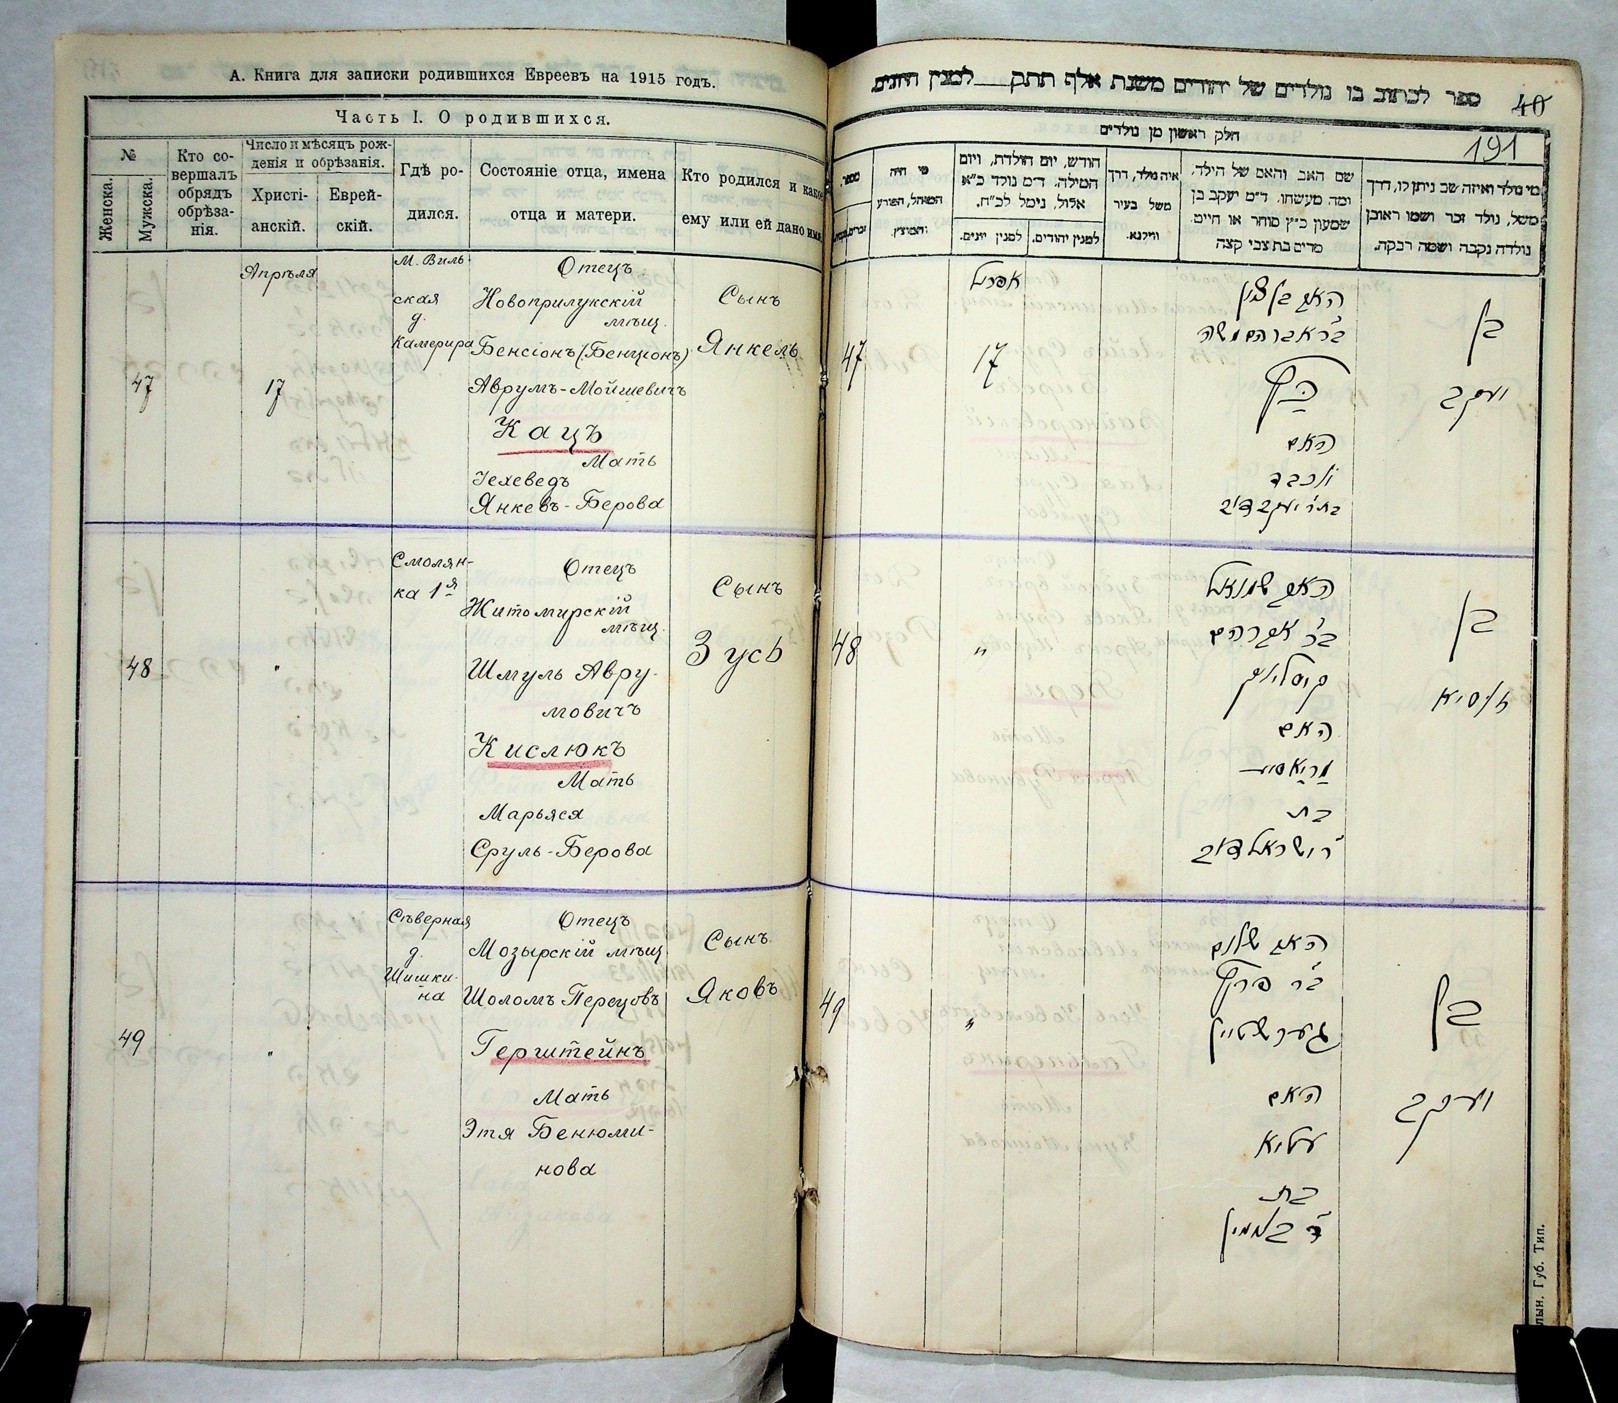 А. Книга для записки родившихся Евреевъ на 1915 годъ.
Часть I. О родившихся.
№
Женска.
Мужска.
Кто со-
вершалъ
обрядъ
обрѣза-
нія.
Число и мѣсяцъ рож-
денія и обрѣзанія.
Христі-
анскій.
Еврей-
скій.
Гдѣ ро-
дился.
Состояніе отца, имена
отца и матери.
Кто родился и какое
ему или ей дано имя.
47
Апрѣля
17
М. Виль
ская
д.
Камерира
Отецъ
Новоприлукскій
мѣщ.
Бенсіонъ (Бенціонъ)
Аврумъ-Мойшевичъ
Кацъ
Мать
Іехеведъ
Янкевъ-Берова
Сынъ
Янкель
48
"
Смолян-
ка 1я
Отецъ
Житомирскій
мѣщ.
Шмуль Авру-
мовичъ
Кислюкъ
Мать
Марьяся
Сруль-Берова
Сынъ
Зусь
49
"
Сѣверная
д.
Шишки-
на
Отецъ
Мозырскій мѣщ.
Шоломъ Перецовъ
Герштейнъ
Мать
Этя Бенюми-
нова
Сынъ
Яковъ
ספר לכתוב בו נולדים של יהודים משנת אלף תתק___למנין היונים.
40
191
חלק ראשון מן נולדים
מספר
מי היה
המוהל, הפורע
והמוצץ.
חודש, יום הולדת, ויום
המילה. ד״מ נולד כ״א
אלול, נימל לכ״ח.
למנין יונים.
למנין יהודים.
איה נולד, דרך
משל בעיר
ווילנא.
שם האב והאם של הילד,
ומה מעשהו. ד״מ יעקב בן
שמעון כ״ץ סוחר או חיים.
מרים בת צבי קצה
מי נולד ואיזה שב ניתן לו, דרך
משל, נולד זכר ושמו ראובן
נולדה נקבה ושמה רבקה.
47
אפריל
17
האב בן ציון
בר׳ אברהם משה
כץ
האם
יוכבד
בת ר׳ יעקב דוב
בן
יעקב
48
"
האב שמואל
בר׳ אברהם
קיסליוק
האם
מריאסיע
בת
ר׳ ישראל דוב
בן
זוסיא
49
"
האב שלום
בר׳ פרץ
גערשטיין
האם
עטיא
בת
ר׳ בנימין
בן
יעקב
лын. Губ. Тип.